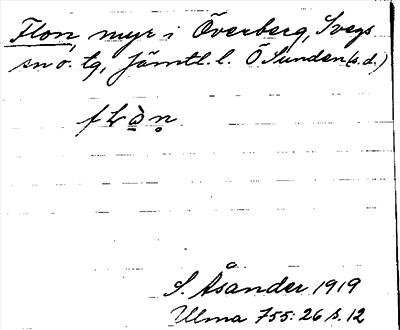 Flon, myr i Överberg, Svegs
sn o. tg, Jämtl. l. Ö Sunden (s.d.)
S. Åsander 1919
Ulma 755:26 s. 12